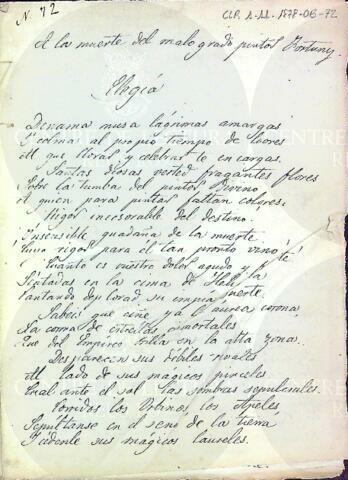 N. 72
CLP. 1-11-1878-06-72
A la muerte del malogrado pintor Fortuny.
Elegía
Derrama musa lágrimas amargas
Y colma al propio tiempo de loores
Al que llorar y celebrar te encargas.
Santas diosas verted fragantes flores
Sobre la tumba del pintor divino
A quien para pintar faltan colores.
Rigor inexorable del destino.
Insensible guadaña de la muerte
rigor para él tan pronto vino
Cuanto es vuestro dolor agudo y
Sentadas en la cima de
Cantando deplorad su impía suerte.
Sabed que ciñe ya la aurea corona
La corona de inmortales
Que del Empireo brilla en la alta zona.
Desparecen sus débiles rivales
Al lado de sus mágicos pinceles
Cual ante el sol las sombras sepulcrales.
los Urbinos, los Apeles
Sepúltanse en el seno de la tierra
Y cédenle sus mágicos laureles.
CENTRE